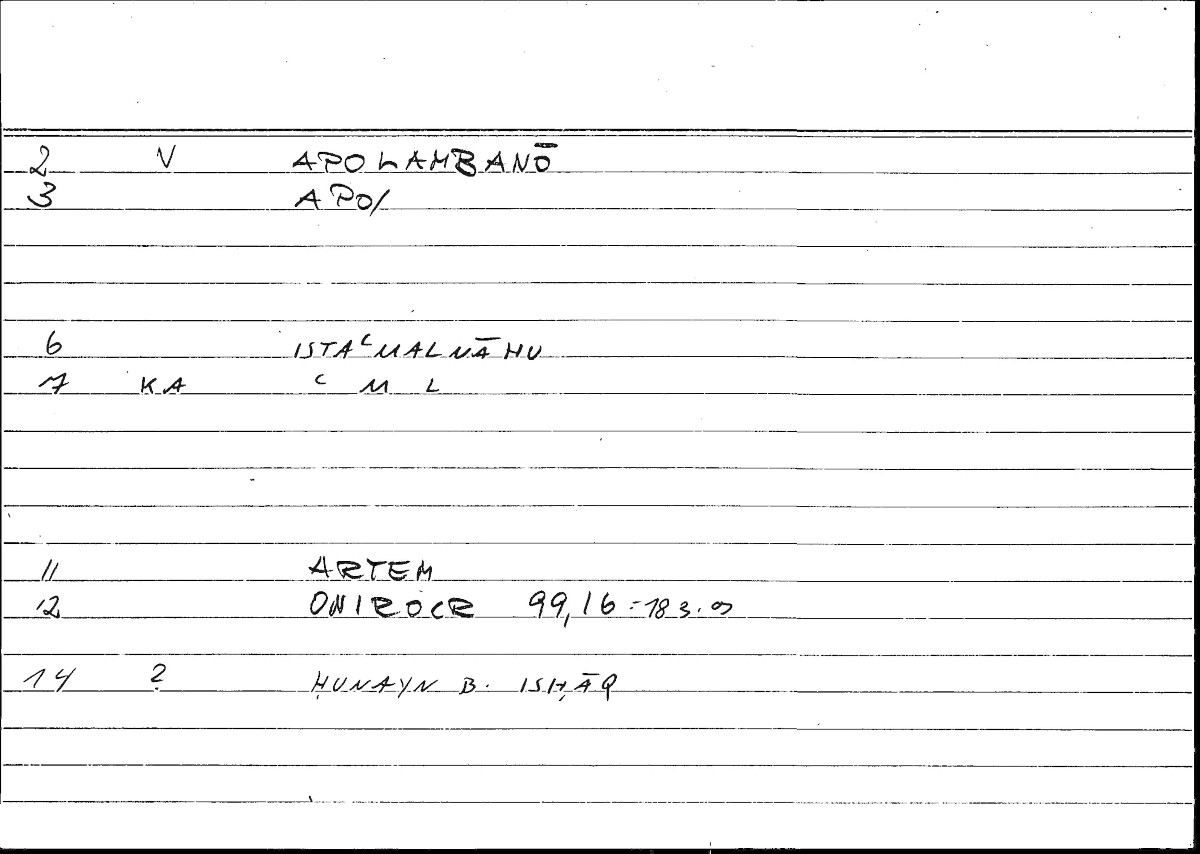 2 V APOLAMBANŌ
3 APO/
6 ISTAʿMALNĀHU
7 KA ʿ M L
11 ARTEM
12 ONIROCR 99,16 = 183.9
14 ? ḤUNAYN B. ISḤĀQ